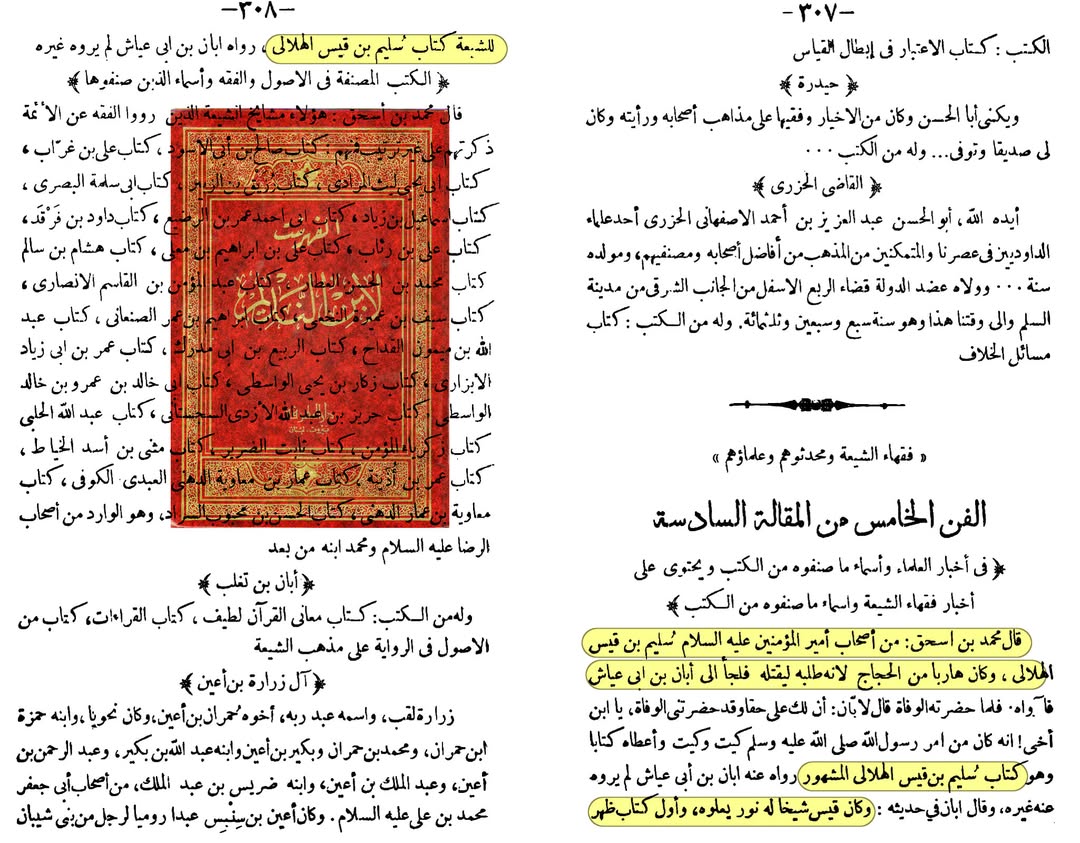 —٣٠٧ -
الكتب : كتاب الاعتبار فى إبطال القياس
﴿ حيدرة ﴾
ويكنى أبا الحسن وكان من الاخيار وفقيها على مذاهب أصحابه ورأيته وكان
لى صديقا وتوفى... وله من الكتب ٠٠٠
﴿ القاضى الخزرى ﴾
أيده الله ، أبو الحسن عبد العزيز بن أحمد الاصفهانى الخزرى أحد علماء
الداوديين فى عصرنا والمتمكنين من المذهب من أفاضل أصحابه ومصنفيهم، ومولده
سنة ٠٠٠ وولاه عضد الدولة قضاء الربع الاسفل من الجانب الشرقى من مدينة
السلم والى وقتنا هذا وهو سنة سبع وسبعين وثلثمائة. وله من الكتب : كتاب
مسائل الخلاف
« فقهاء الشيعة ومحدثوهم وعلماؤهم »
الفن الخامس من المقالة السادسة
﴿ فى أخبار العلماء وأسماء ما صنفوه من الكتب ويحتوى على
أخبار فقهاء الشيعة واسماء ما صنفوه من الكتب ﴾
قال محمد بن اسحق: من أصحاب أمير المؤمنين عليه السلام سُليم بن قيس
الهلالى ، وكان هاربا من الحجاج لانه طلبه ليقتله فلجأ الى أبان بن ابى عياش
فآواه. فلما حضرته الوفاة قال لابان: أن لك على حقا وقد حضرتنى الوفاة، يا ابن
أخى! انه كان من امر رسول الله صلى الله عليه وسلم كيت وكيت وأعطاه كتابا
وهو كتاب سُليم بن قيس الهلالى المشهور رواه عنه ابان بن أبى عياش لم يروه
عنه غيره، وقال ابان في حديثه : وكان قيس شيخا له نور يعلوه، وأول كتاب ظهر
—٣٠٨—
للشيعة كتاب سُليم بن قيس الهلالى ، رواه ابان بن ابى عياش لم يروه غيره
﴿ الكتب المصنفة فى الاصول والفقه وأسماء الذين صنفوها ﴾
قال محمد بن أسحق : هؤلاء مشايخ الشيعة الذين رووا الفقه عن الائمة
ذكرتهم على غير ترتيب فمنهم : كتاب صالح بن أبى الأسود ، كتاب على بن غراب ،
كتاب ابى يحيى ليث المرادى ، كتاب زريق بن الزبير ، كتاب ابى سلمة البصرى ،
كتاب اسماعيل بن زياد ، كتاب ابى احمد عمر بن الرضيع ، كتاب داود بن فَرْقَد،
كتاب على بن رئاب ، كتاب على بن ابراهيم بن معلى ، كتاب هشام بن سالم
كتاب محمد بن الحسن العطار ، كتاب عبد المؤمن بن القاسم الانصارى ،
كتاب سيف بن عميرة النخعى ، كتاب ابراهيم بن عمر الصنعانى ، كتاب عبد
الله بن ميمون القداح ، كتاب الربيع بن ابى مدرك ، كتاب عمر بن ابى زياد
الابزارى ، كتاب زكار بن يحيى الواسطى ، كتاب ابى خالد بن عمرو بن خالد
الواسطى ، كتاب حريز بن عبد الله الأزدى السجستانى ، كتاب عبد الله الحلبى
كتاب زكرياء المؤمن ، كتاب ثابت الضرير ، كتاب مثنى بن أسد الخياط ،
كتاب عمر بن أذينة ، كتاب عمار بن معاوية الدهنى العبدى الكوفى ، كتاب
معاوية بن عمار الدهنى ، كتاب الحسن بن محبوب السراد، وهو الوارد من أصحاب
الرضا عليه السلام ومحمد ابنه من بعد
﴿ أبان بن تغلب ﴾
وله من الكتب: كتاب معانى القرآن لطيف ، كتاب القراءات، كتاب من
الاصول فى الرواية على مذهب الشيعة
﴿ آل زرارة بن أعين ﴾
زرارة لقب، واسمه عبد ربه، أخوه حُمران بن أعين، وكان نحويا، وابنه حمزة
ابن حمران، ومحمد بن حمران وبكير بن أعين وابنه عبد الله بن بكير، وعبد الرحمن بن
أعين، وعبد الملك بن أعين، وابنه ضريس بن عبد الملك، من أصحاب أبى جعفر
محمد بن على عليه السلام . وكان أعين بن سِنْبِس عبدا روميا لرجل من بنى شيبان
الفهرست
لابن النديم
دار المعرفة
بيروت - لبنان